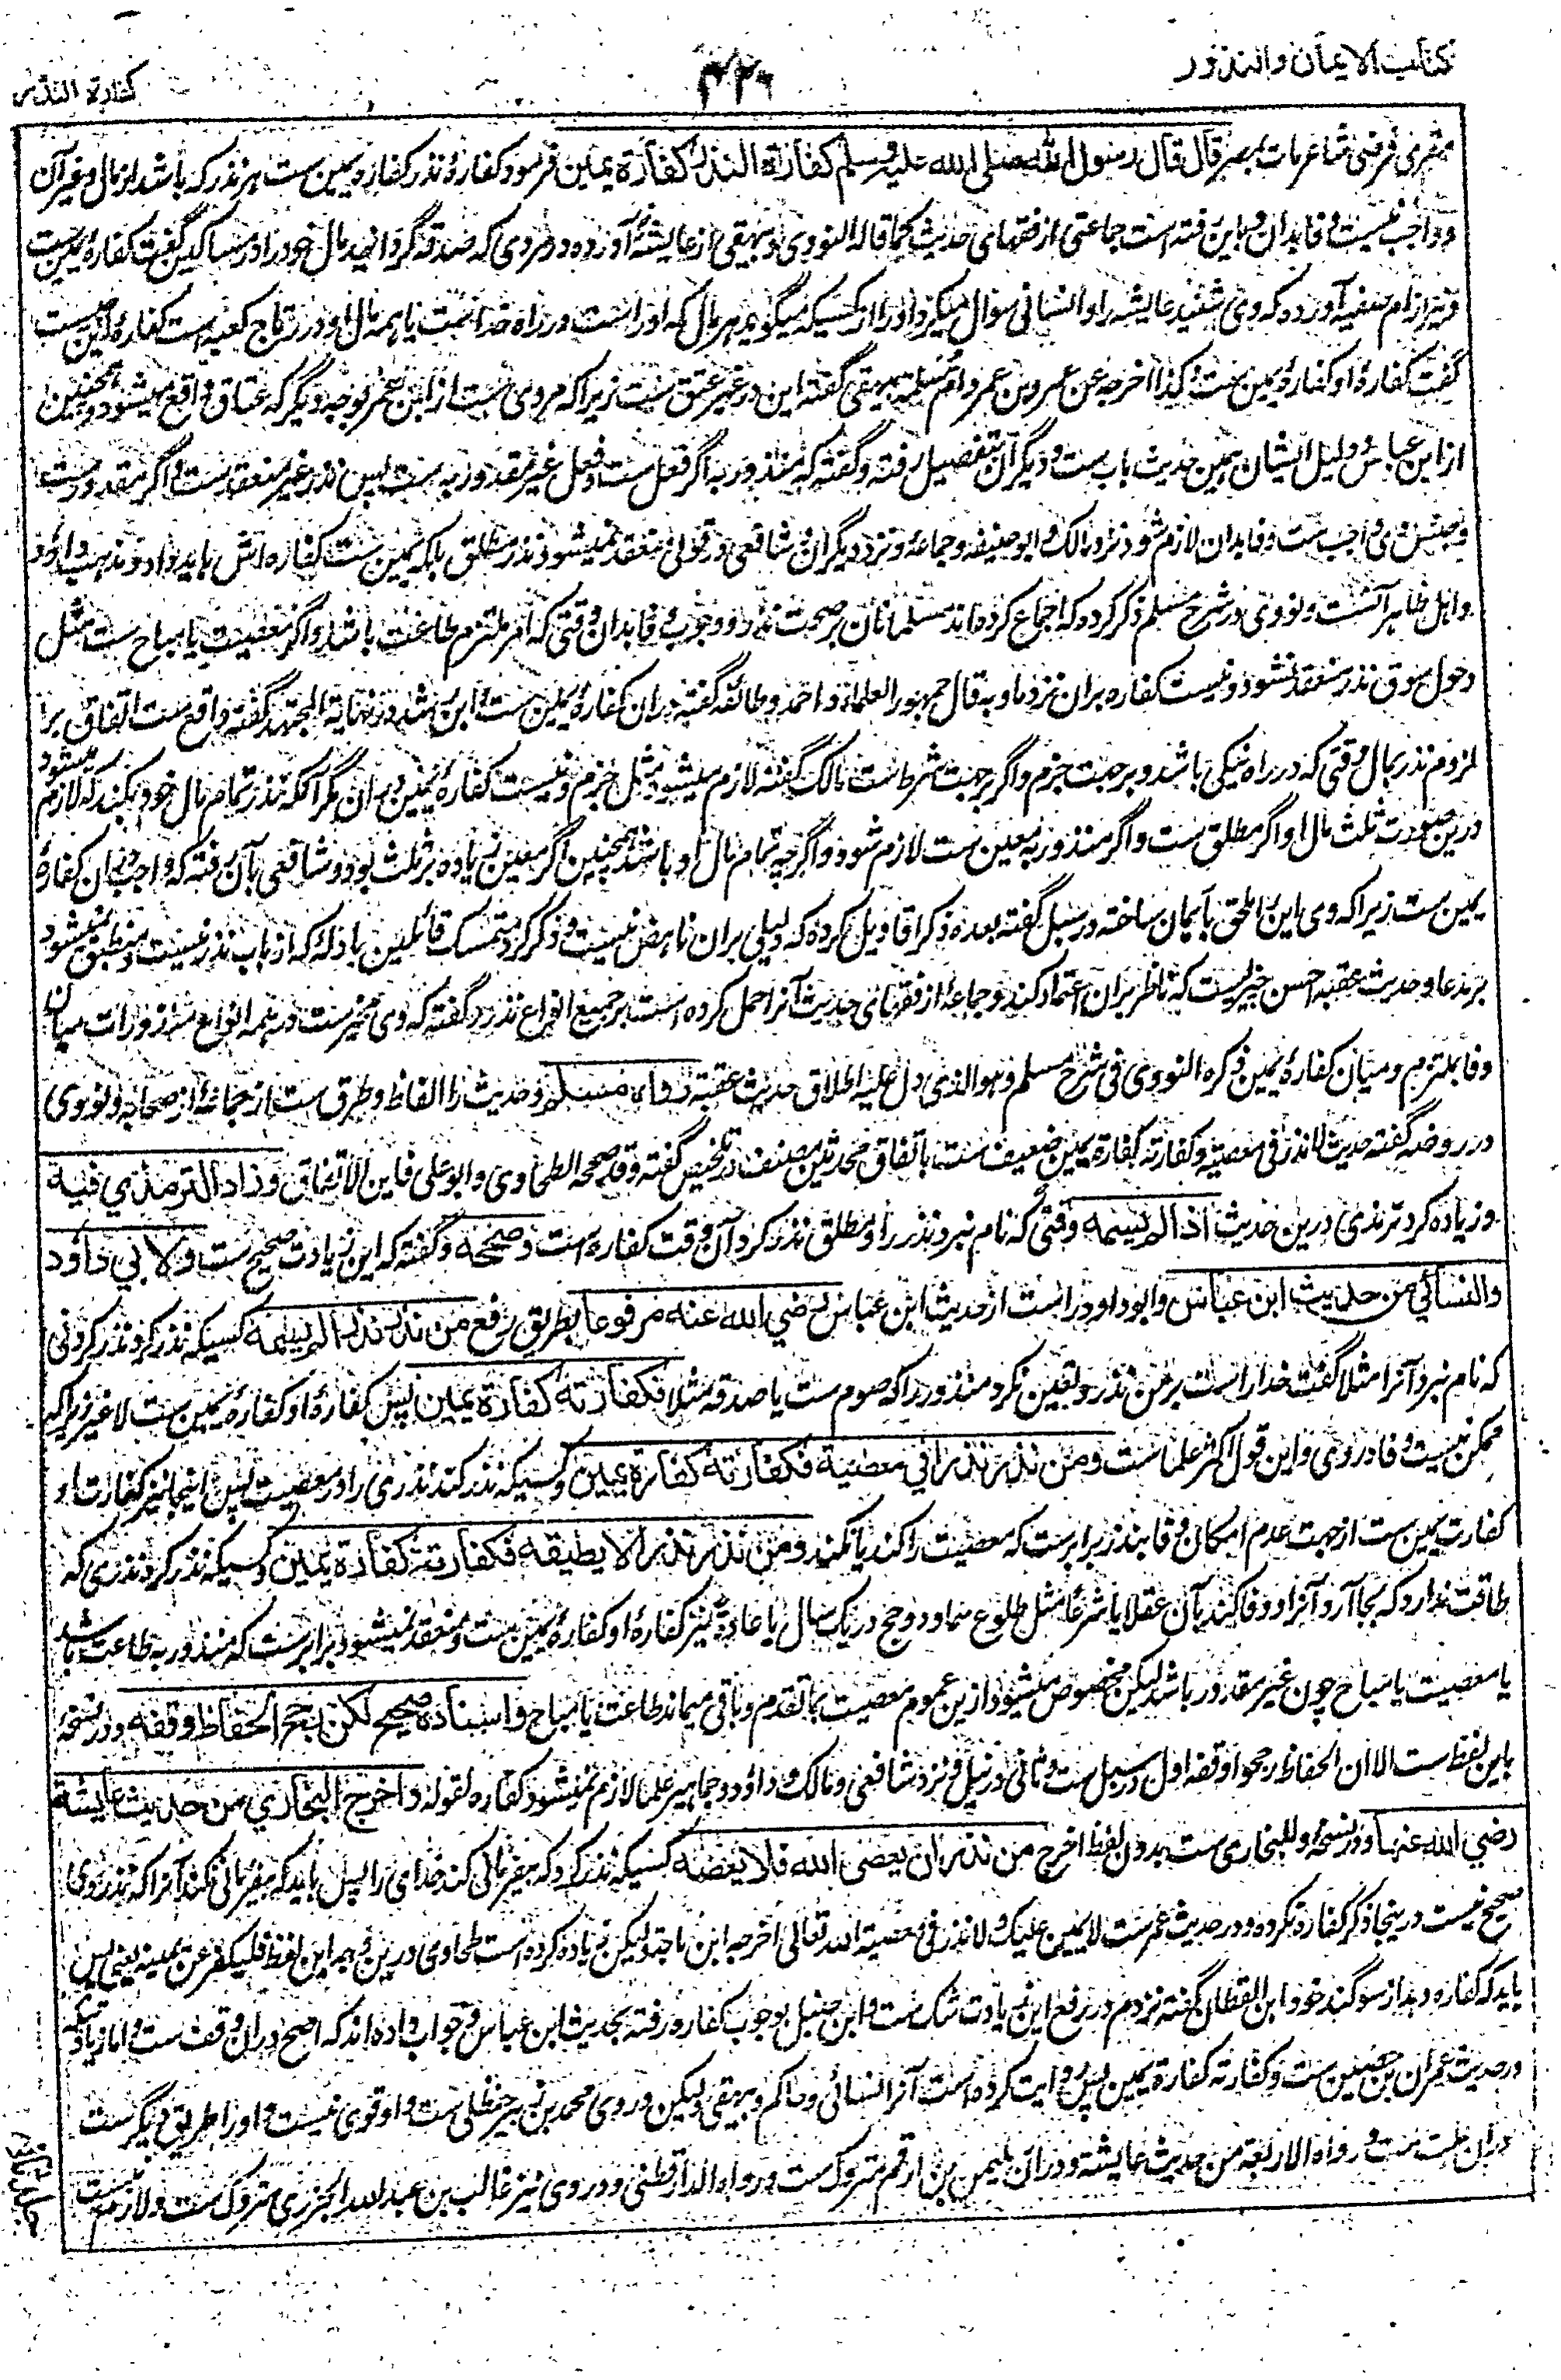 كتاب الايمان والنذور
۴۲۶
كفارة النذر
مصری فرضی شاعر مات بمصر قال قال رسول الله صلى الله عليه وسلم كفارة النذر كفارة يمين فرمود کفارهٔ نذر کفارهٔ یمین ست هر نذر که باشد از مال و غیر آن
و واجب نیست وفا بدان و باین رفته است جماعتی از فقهای حدیث کما قاله النووی و بیهقی از عایشه آورده در مردی که صدقه گردانید مال خود را در مساکین گفت کفارهٔ یمین ست
و نیز از ام صفیه آورده که وی شنید عایشه را و انسانی سوال میکرد او را از کسیکه میگوید هر مال که او راست در راه خداست یا همه مال او در رتاج کعبه است کفارهٔ این چیست
گفت کفارهٔ او کفارهٔ یمین ست و کذا اخرجه عن عمر وبن عمر و ام سلمة بیهقی گفته این در غیر عتق ست زیراکه مروی ست از ابن عمر بوجه دیگر که عتاق واقع میشود و همچنین
از ابن عباس و دلیل ایشان همین حدیث باب ست و دیگران بتفصیل رفته و گفته که منذور به اگر فعل ست و فعل غیر مقدور به ست پس نذر غیر منعقد ست و اگر مقدور ست
و جنس وی واجب ست وفا بدان لازم شود نزد مالک و ابو حنیفه و جماعه و نزد دیگران و شافعی در قولی منعقد نمیشود نذر مطلق بلکه یمین ست کفاره اش باید داد و مذهب داود
و اهل ظاهر آنست و نووی در شرح مسلم ذکر کرده که اجماع کرده اند مسلمانان بر صحت نذر و وجوب وفا بدان وقتی که امر ملتزم طاعت باشد و اگر معصیت یا مباح ست مثل
دخول سوق نذر منعقد نشود و نیست کفاره بران نزد ما و به قال جمهور العلماء و احمد و طائفه گفته دران کفارهٔ یمین ست و ابن رشد در نهایة المجتهد گفته واقع ست اتفاق بر
لزوم نذر بمال وقتی که در راه نیکی باشد و بر جهت جزم و اگر بر جهت شرط ست مالک گفته لازم میشود مثل جزم و نیست کفارهٔ یمین دران مگر آنکه نذر تمام مال خود بکند که لازم میشود
درین صورت ثلث مال او اگر مطلق ست و اگر منذور به معین ست لازم شود و اگرچه تمام مال او باشد و همچنین اگر معین زیاده بر ثلث بود و شافعی بآن رفته که واجب دران کفارهٔ
یمین ست زیراکه وی این را ملحق بایمان ساخته در سبل گفته بعده ذکر اقاویل کرده که دلیلی بران ناهض نیست و ذکر کرد متمسک قائلین بادله که از باب نذر نیست و منطبق نمیشود
بر مدعا و حدیث عقبه احسن چیزیست که ناظر بران اعتماد کند و جماعهٔ از فقهای حدیث آنرا حمل کرده است بر جمیع انواع نذر و گفته که وی مخیر ست در همه انواع منذورات میان
وفا بملتزم و میان کفارهٔ یمین ذکره النووی فی شرح مسلم و هو الذی دل علیه اطلاق حدیث عقبة رواه مسلم و حدیث را الفاظ و طرق ست از جماعهٔ از صحابه و نووی
در روضه گفته حدیث لا نذر فی معصیة و کفارته کفارة یمین ضعیف ست باتفاق محدثین مصنف در تلخیص گفته و قد صححه الطحاوی و ابو علی فاین الاتفاق وزاد الترمذي فيه
و زیاده کرد ترمذی درین حدیث اذا لم يسمه وقتی که نام نبرد نذر را و مطلق نذر کرد آن وقت کفاره است وصححه و گفته که این زیادت صحیح ست ولابي داود
والنسائي من حديث ابن عباس و ابو داود راست از حدیث ابن عباس رضي الله عنه مرفوعا بطریق رفع من نذر نذرا لم يسمه کسیکه نذر کرد نذر کردنی
که نام نبرد آنرا مثلا گفت خدا راست بر من نذر و تعیین نکرد منذور را که صوم ست یا صدقه مثلا فكفارته كفارة يمين پس کفارهٔ او کفارهٔ یمین ست لا غیر زیراکه
ممکن نیست وفا در وی و این قول اکثر علماست ومن نذر نذرا في معصية فكفارته كفارة يمين و کسیکه نذر کند نذری را در معصیت پس اینجا نیز کفارت او
کفارت یمین ست از جهت عدم امکان وفا بنذر برابر ست که معصیت را کند یا نکند ومن نذر نذرا لا يطيقه فكفارته كفارة يمين و کسیکه نذر کرد نذری که
طاقت ندارد که بجا آرد آنرا و وفا کند بآن عقلا یا شرعا مثل طلوع سما و دو حج در یک سال یا عادة نیز کفارهٔ او کفارهٔ یمین ست و منعقد نمیشود برابر ست که منذور به طاعت باشد
یا معصیت یا مباح چون غیر مقدور باشد لیکن مخصوص میشود ازین عموم معصیت بما تقدم و باقی میماند طاعت یا مباح واسناده صحيح لكن رجح الحفاظ وقفه و در نسخهٔ
باین لفظ ست الا ان الحفاظ رجحوا وقفه اول در سبل ست و ثانی در نیل و نزد شافعی و مالک و داود و جماهیر علما لازم نمیشود کفاره لقوله واخرج البخاري من حديث عايشة
رضي الله عنها و در نسخهٔ وللبخاری ست بدون لفظ اخرج من نذر ان يعصي الله فلا يعصه کسیکه نذر کرد که بیفرمانی کند خدای را پس باید که بیفرمانی نکند آنرا که نذر وی
صحیح نیست درینجا ذکر کفاره نکرده و در حدیث عمر ست لا یمین علیک ولا نذر فی معصیة الله تعالی اخرجه ابن ماجه و لیکن زیاده کرده است طحاوی درین وجه این لفظ فلیکفر عن یمینه یعنی پس
باید که کفاره دهد از سوگند خود ابن القطان گفته نزدم در رفع این زیادت شک ست و ابن حنبل بوجوب کفاره رفته بحدیث ابن عباس و جواب داده اند که اصح دران وقف ست و اما زیادتیکه
در حدیث عمران بن حصین ست و کفارته کفارة یمین پس روایت کرده است آنرا نسائی و حاکم و بیهقی و لیکن در وی محمد بن زبیر حنظلی ست و او قوی نیست و او را طریق دیگر ست
دران علت ست و رواه الاربعة من حدیث عایشة و دران سلیمن بن ارقم متروک ست و رواه الدارقطنی و در وی نیز غالب بن عبد الله الجزری متروک ست و لازم نیست